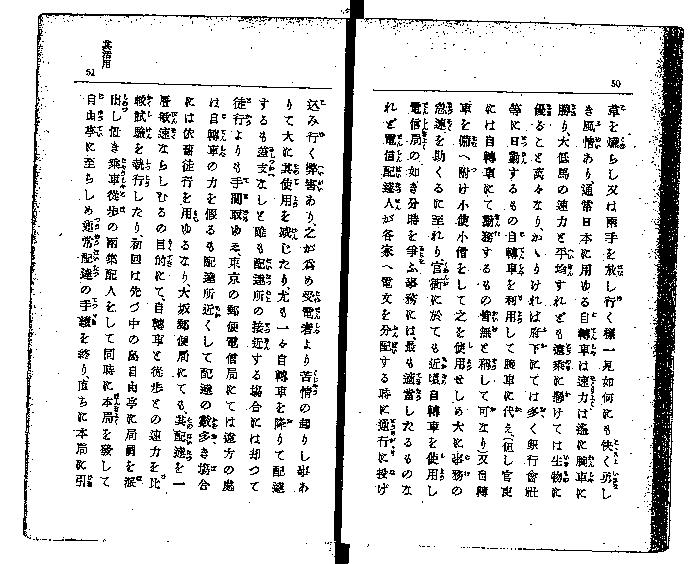 50
草を嬲らし又は兩手を放し行く樣一見如何にも快く勇し
き風情あり、通常日本に用ゆる自轉車は速力は遙に腕車に
勝り、大低馬の速力と平均すれども遠乘に懸けては生物に
優ること萬々なり、かゝりければ府下にては多く銀行會社
等に日勤するもの自轉車を利用して腕車に代え(但し官吏
には自轉車にて勤務するもの皆無と稱して可なり)又自轉
車を備へ附け小使小僧をして之を使用せしめ大に事務の
急速を助くるに至れり、官衙に於ても近頃自轉車を使用し
電信局の如き分時を爭ふ事務には最も適當したるものな
れど電信配達人が各家へ電文を分配する時に進行に投げ
其活用
51
込み行く弊害あり、之が爲め受電者より苦情の起りし事あ
りて大に其使用を減じたり、尤も一々自轉車を降りて配達
するも差支なしと雖も配達所の接近する場合には却つて
徒行よりも手間取ゆゑ、東京の郵便電信局にては遠方の處
は自轉車の力を假るも配達所近くして配達の數多き場合
には依舊徒行を用ゆるなり、大坂郵便局にても、其配達を一
層敏速ならしむるの目的にて、自轉車と徒歩との速力を比
較試驗を執行したり、初回は先づ中の島自由亭に局員を派
出し置き乘車徒歩の兩集配人をして同時に本局を發して
自由亭に至らしめ通常配達の手續を終り、直ちに本局に引